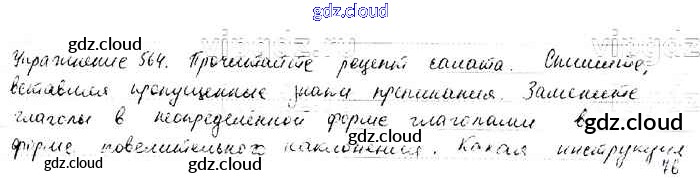 gdz.cloud
gdz.cloud gdz.cloud
Упражнение 564. Прочитайте рецепт салата. Спишите,
вставляя пропущенные знаки препинания. Замените
gdz.cloud gdz.cloud
глаголы в неопределённой форме глаголами в
форме повелительного наклонения. Какая инструкция
gdz.cloud
76